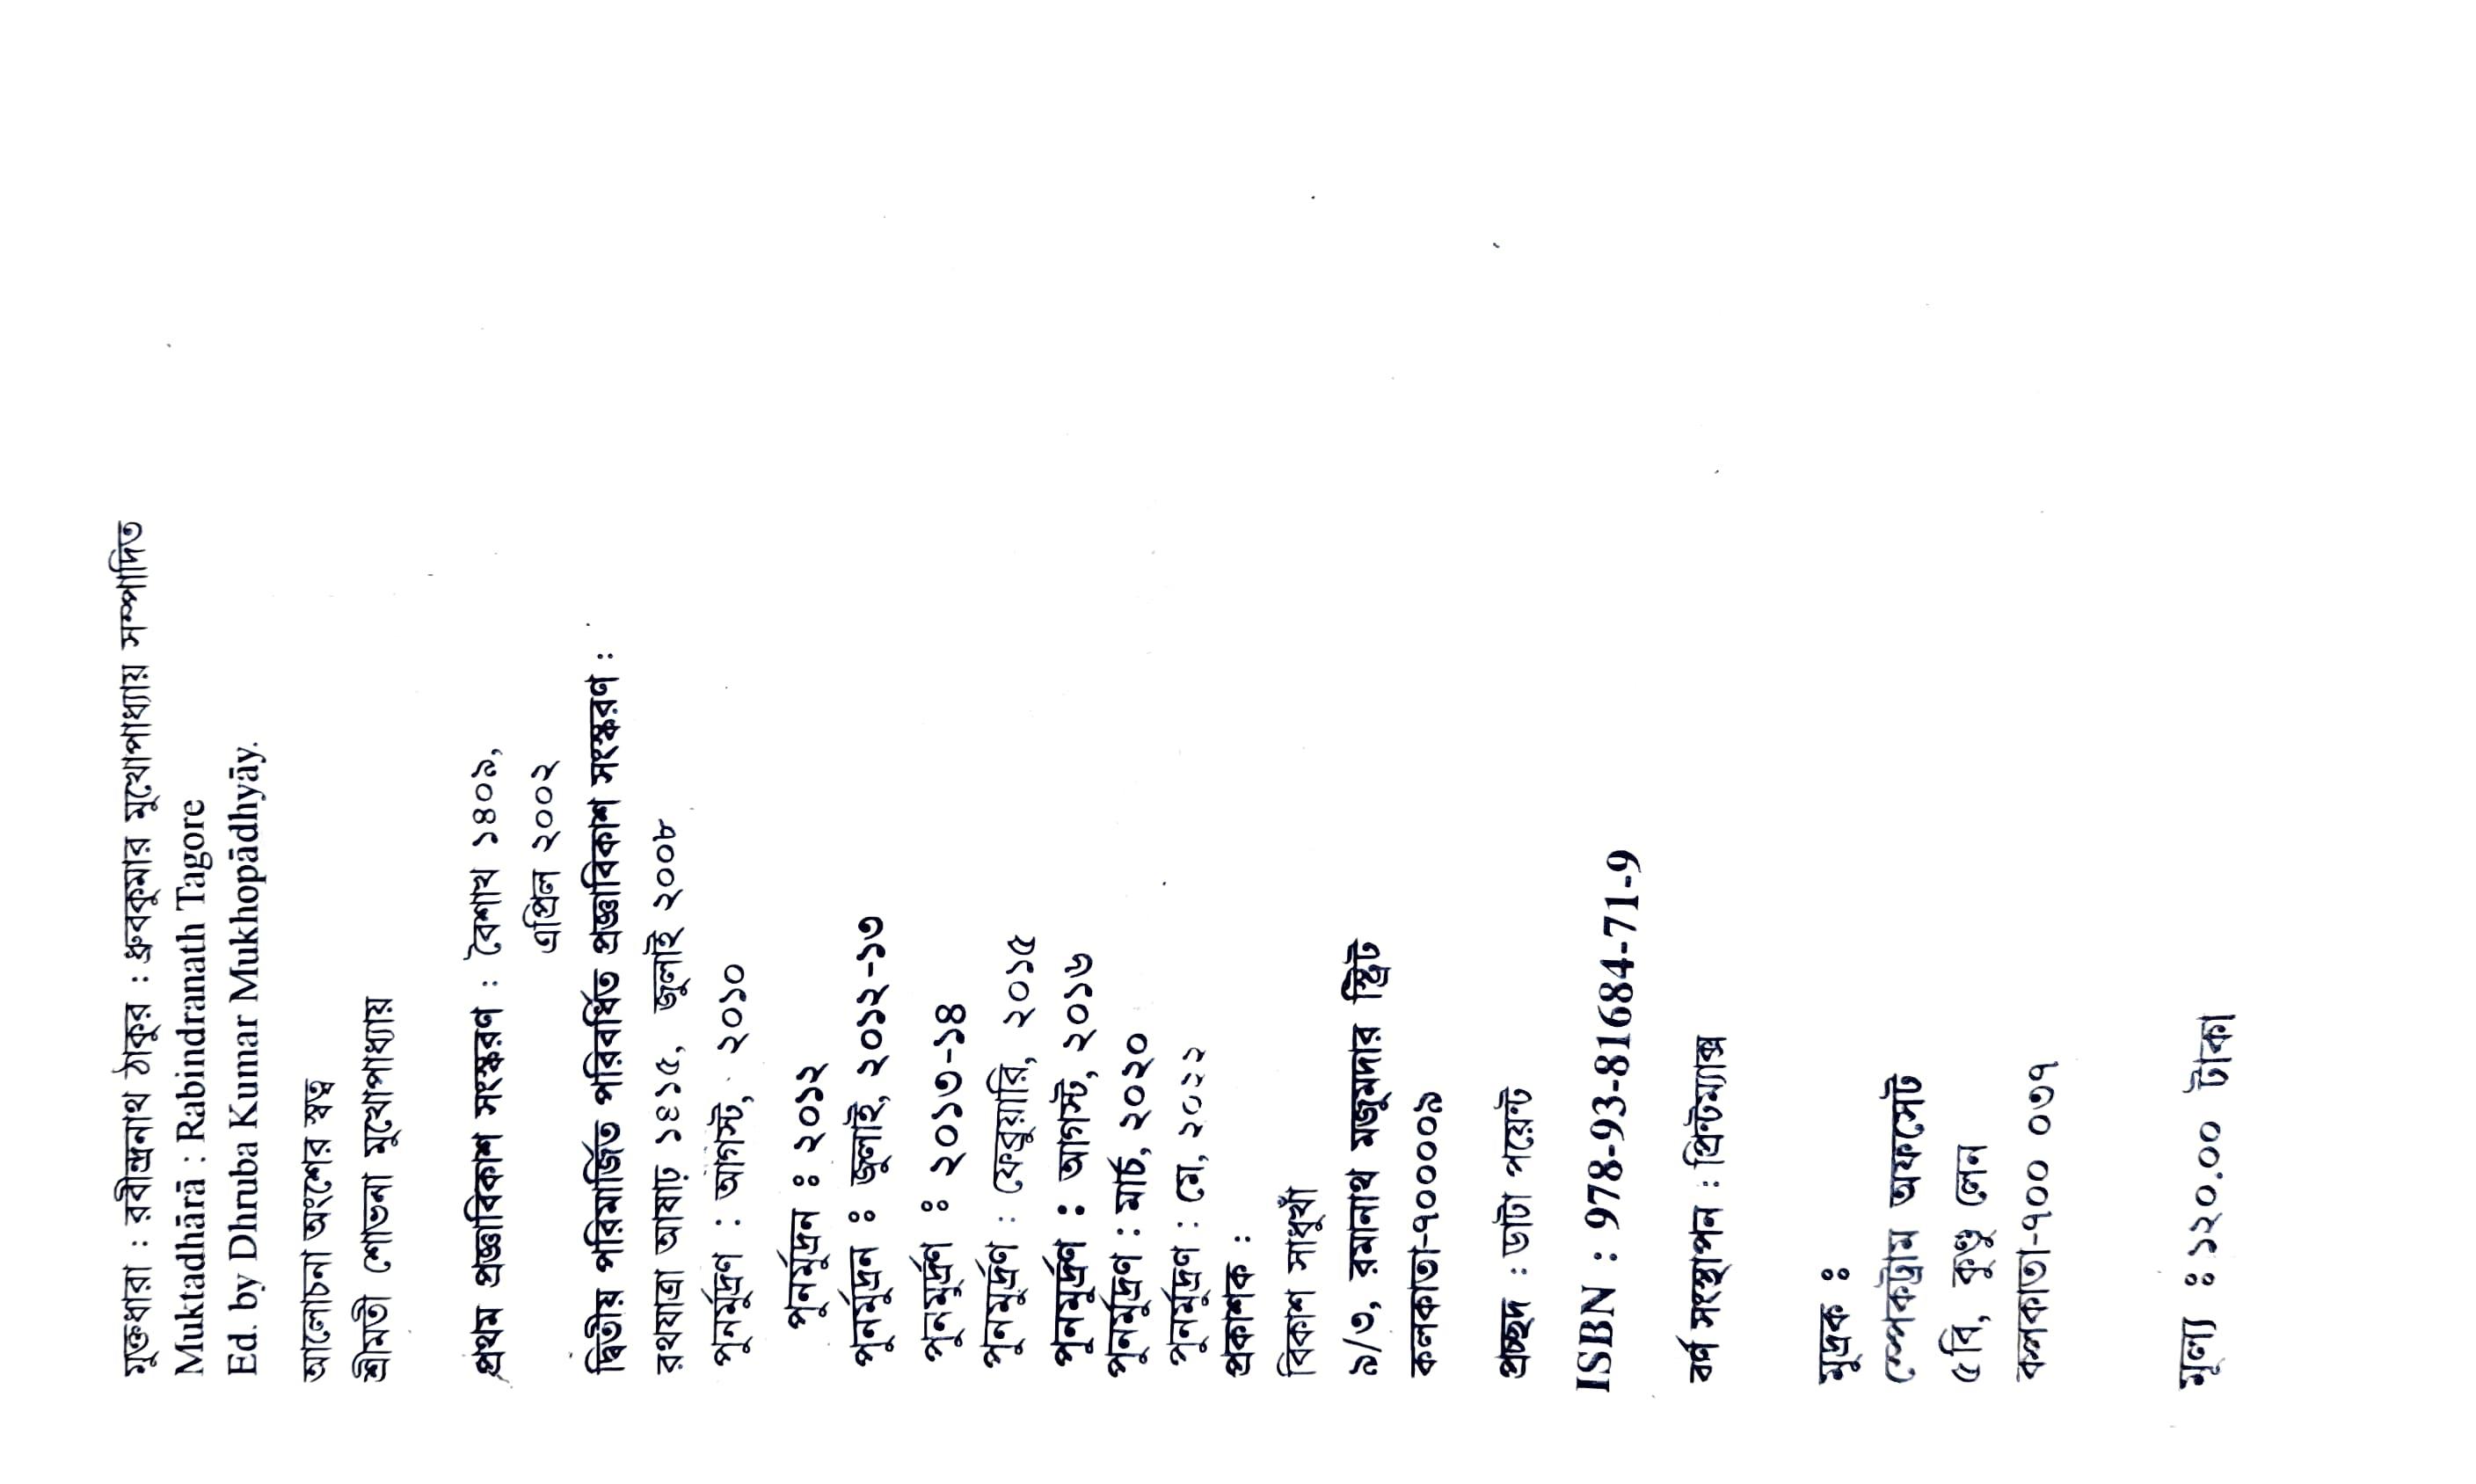 মুক্তধারা : রবীন্দ্রনাথ ঠাকুর : ধ্রুবকুমার মুখোপাধ্যায় সম্পাদিত
Muktadhārā : Rabindranath Tagore
Ed. by Dhruba Kumar Mukhopādhyāy.
আলোচনা অংশের স্বত্ব
শ্রীমতী শোভনা মুখোপাধ্যায়
প্রথম প্রজ্ঞাবিকাশ সংস্করণ : বৈশাখ ১৪০৯,
এপ্রিল ২০০২
দ্বিতীয় পরিমার্জিত পরিবর্ধিত প্রজ্ঞাবিকাশ সংস্করণ :
রথযাত্রা আষাঢ় ১৪১৫, জুলাই ২০০৮
পুনর্মুদ্রণ : আগস্ট, ২০১০
পুনর্মুদ্রন ঃ ২০১২
পুনর্মুদ্রন ঃ জুলাই, ২০১২-১৩
পুনমুর্দ্রণ ঃ ২০১৩-১৪
পুনমুর্দ্রণ : ফেব্রুয়ারি, ২০১৫
পুনমুর্দ্রণ : আগস্ট, ২০১৬
পুনর্মুদ্রণ : মার্চ, ২০২০
পুনর্মুদ্রণ : মে, ২০২২
প্রকাশক :
বিকাশ সাধুখাঁ
৯/৩, রমানাথ মজুমদার স্ট্রিট
কলকাতা-৭০০০০৯
প্রচ্ছদ : ডাটা পয়েন্ট
ISBN : 978-93-81684-71-9
বর্ণ সংস্থাপন : প্রিন্টম্যাক্স
মুদ্রক ঃ
স্পেকট্রাম অফসেট
৫বি, কুণ্ডু লেন
কলকাতা-৭০০ ০৩৭
মূল্য ঃ ১২০.০০ টাকা